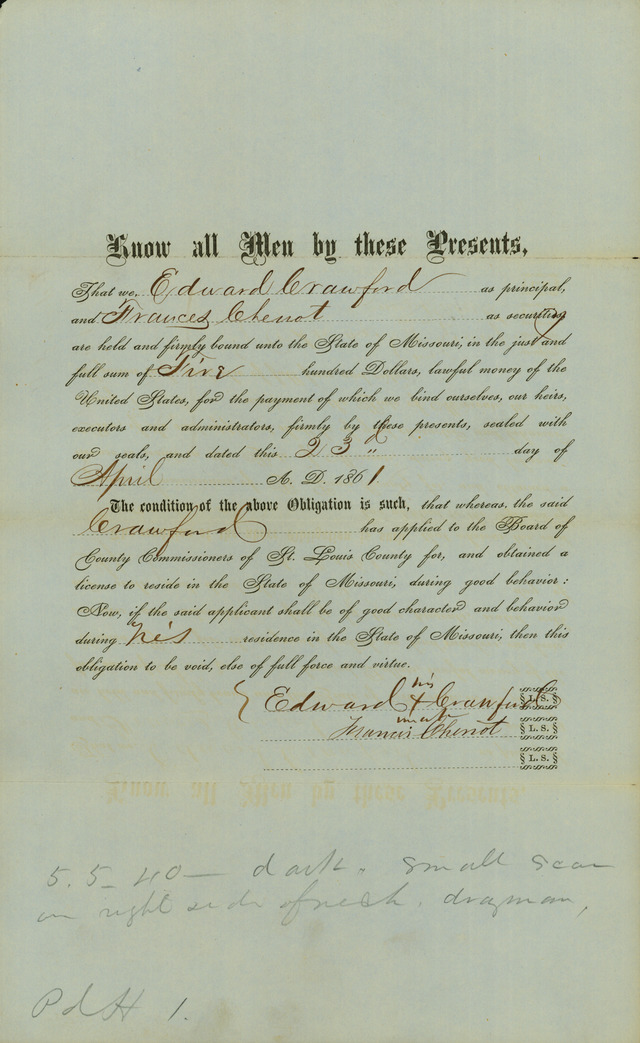 Know all Men by these Presents,
That we, Edward Crawford as principal,
and Frances Chenot as security
are held and firmly bound unto the State of Missouri, in the just and
full sum of Five hundred Dollars, lawful money of the
United States, for the payment of which we bind ourselves, our heirs,
executors and administrators, firmly by these presents, sealed with
our seals, and dated this 23" day of
April A. D. 1861
The condition of the above Obligation is such, that whereas the said
Crawford has applied to the Board of
County Commissioners of St. Louis County for, and obtained a
license to reside in the State of Missouri, during good behavior:
Now, if the said applicant shall be of good character and behavior
during his residence in the State of Missouri, then this
obligation to be void, else of full force and virtue.
his
Edward X Crawford L. S.
mark
Francis Chenot L. S.
L. S.
5.5- 40- dark. small scar
on right side of neck. drayman,
Pd H 1.